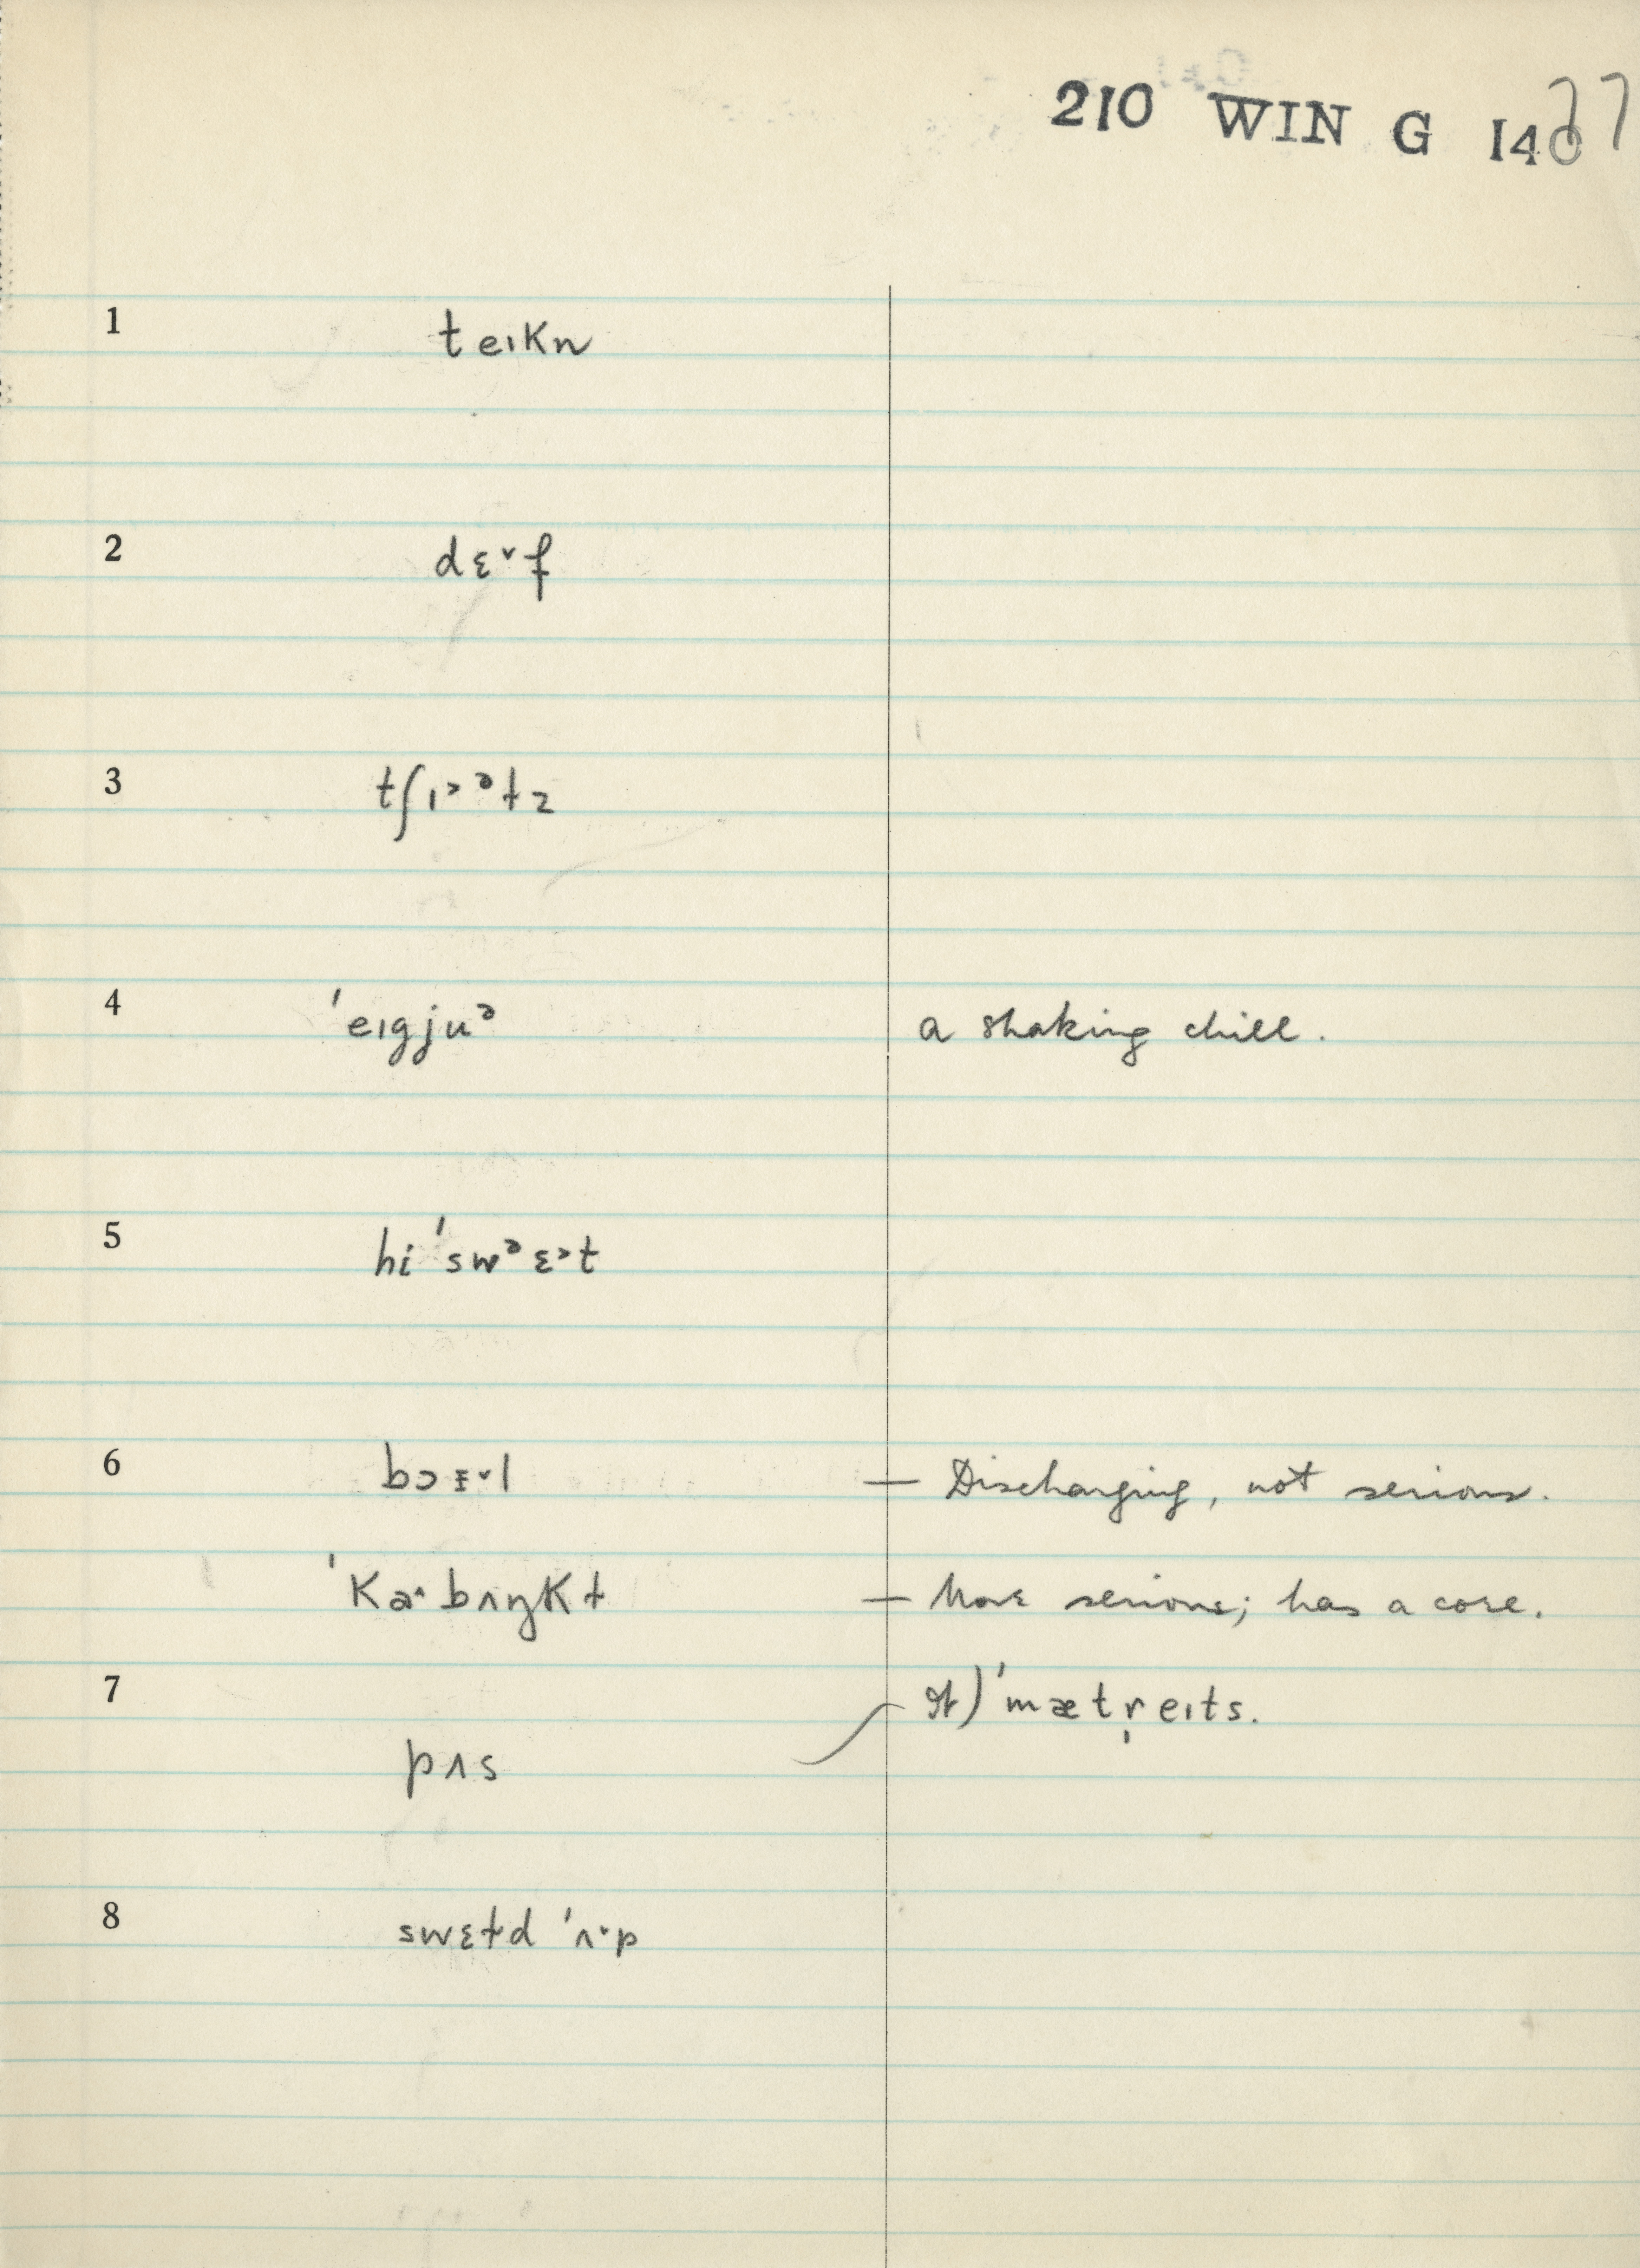 210 WIN G 1477
1 teɪkn
2 dɛ˅f
3 tʃɪ˃ᵊɫz
4 ˈeɪgjuᵊ a shaking chill.
5 hi ˈswᵊɛ˃t
6 bɔɪ̵˅l — Discharging, not serious.
ˈka˄bʌŋkɫ — More serious; has a core.
7 It) ˈmætr̩eɪts.
pʌs
8 swɛt̬d ˈʌ˅p